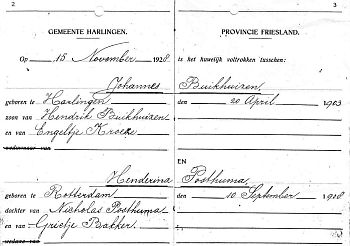 2
3
GEMEENTE HARLINGEN.
PROVINCIE FRIESLAND.
Op 15 November 1928
is het huwelijk voltrokken tusschen:
Johannes Buikhuizen
geboren te Harlingen den 20 April 1903
zoon van Hendrik Buikhuizen
en van Engeltje Kroeze
weduwnaar van
EN
Henderina Posthuma
geboren te Rotterdam den 10 September 1908
dochter van Nicholas Posthuma
en van Grietje Bakker
weduwe van